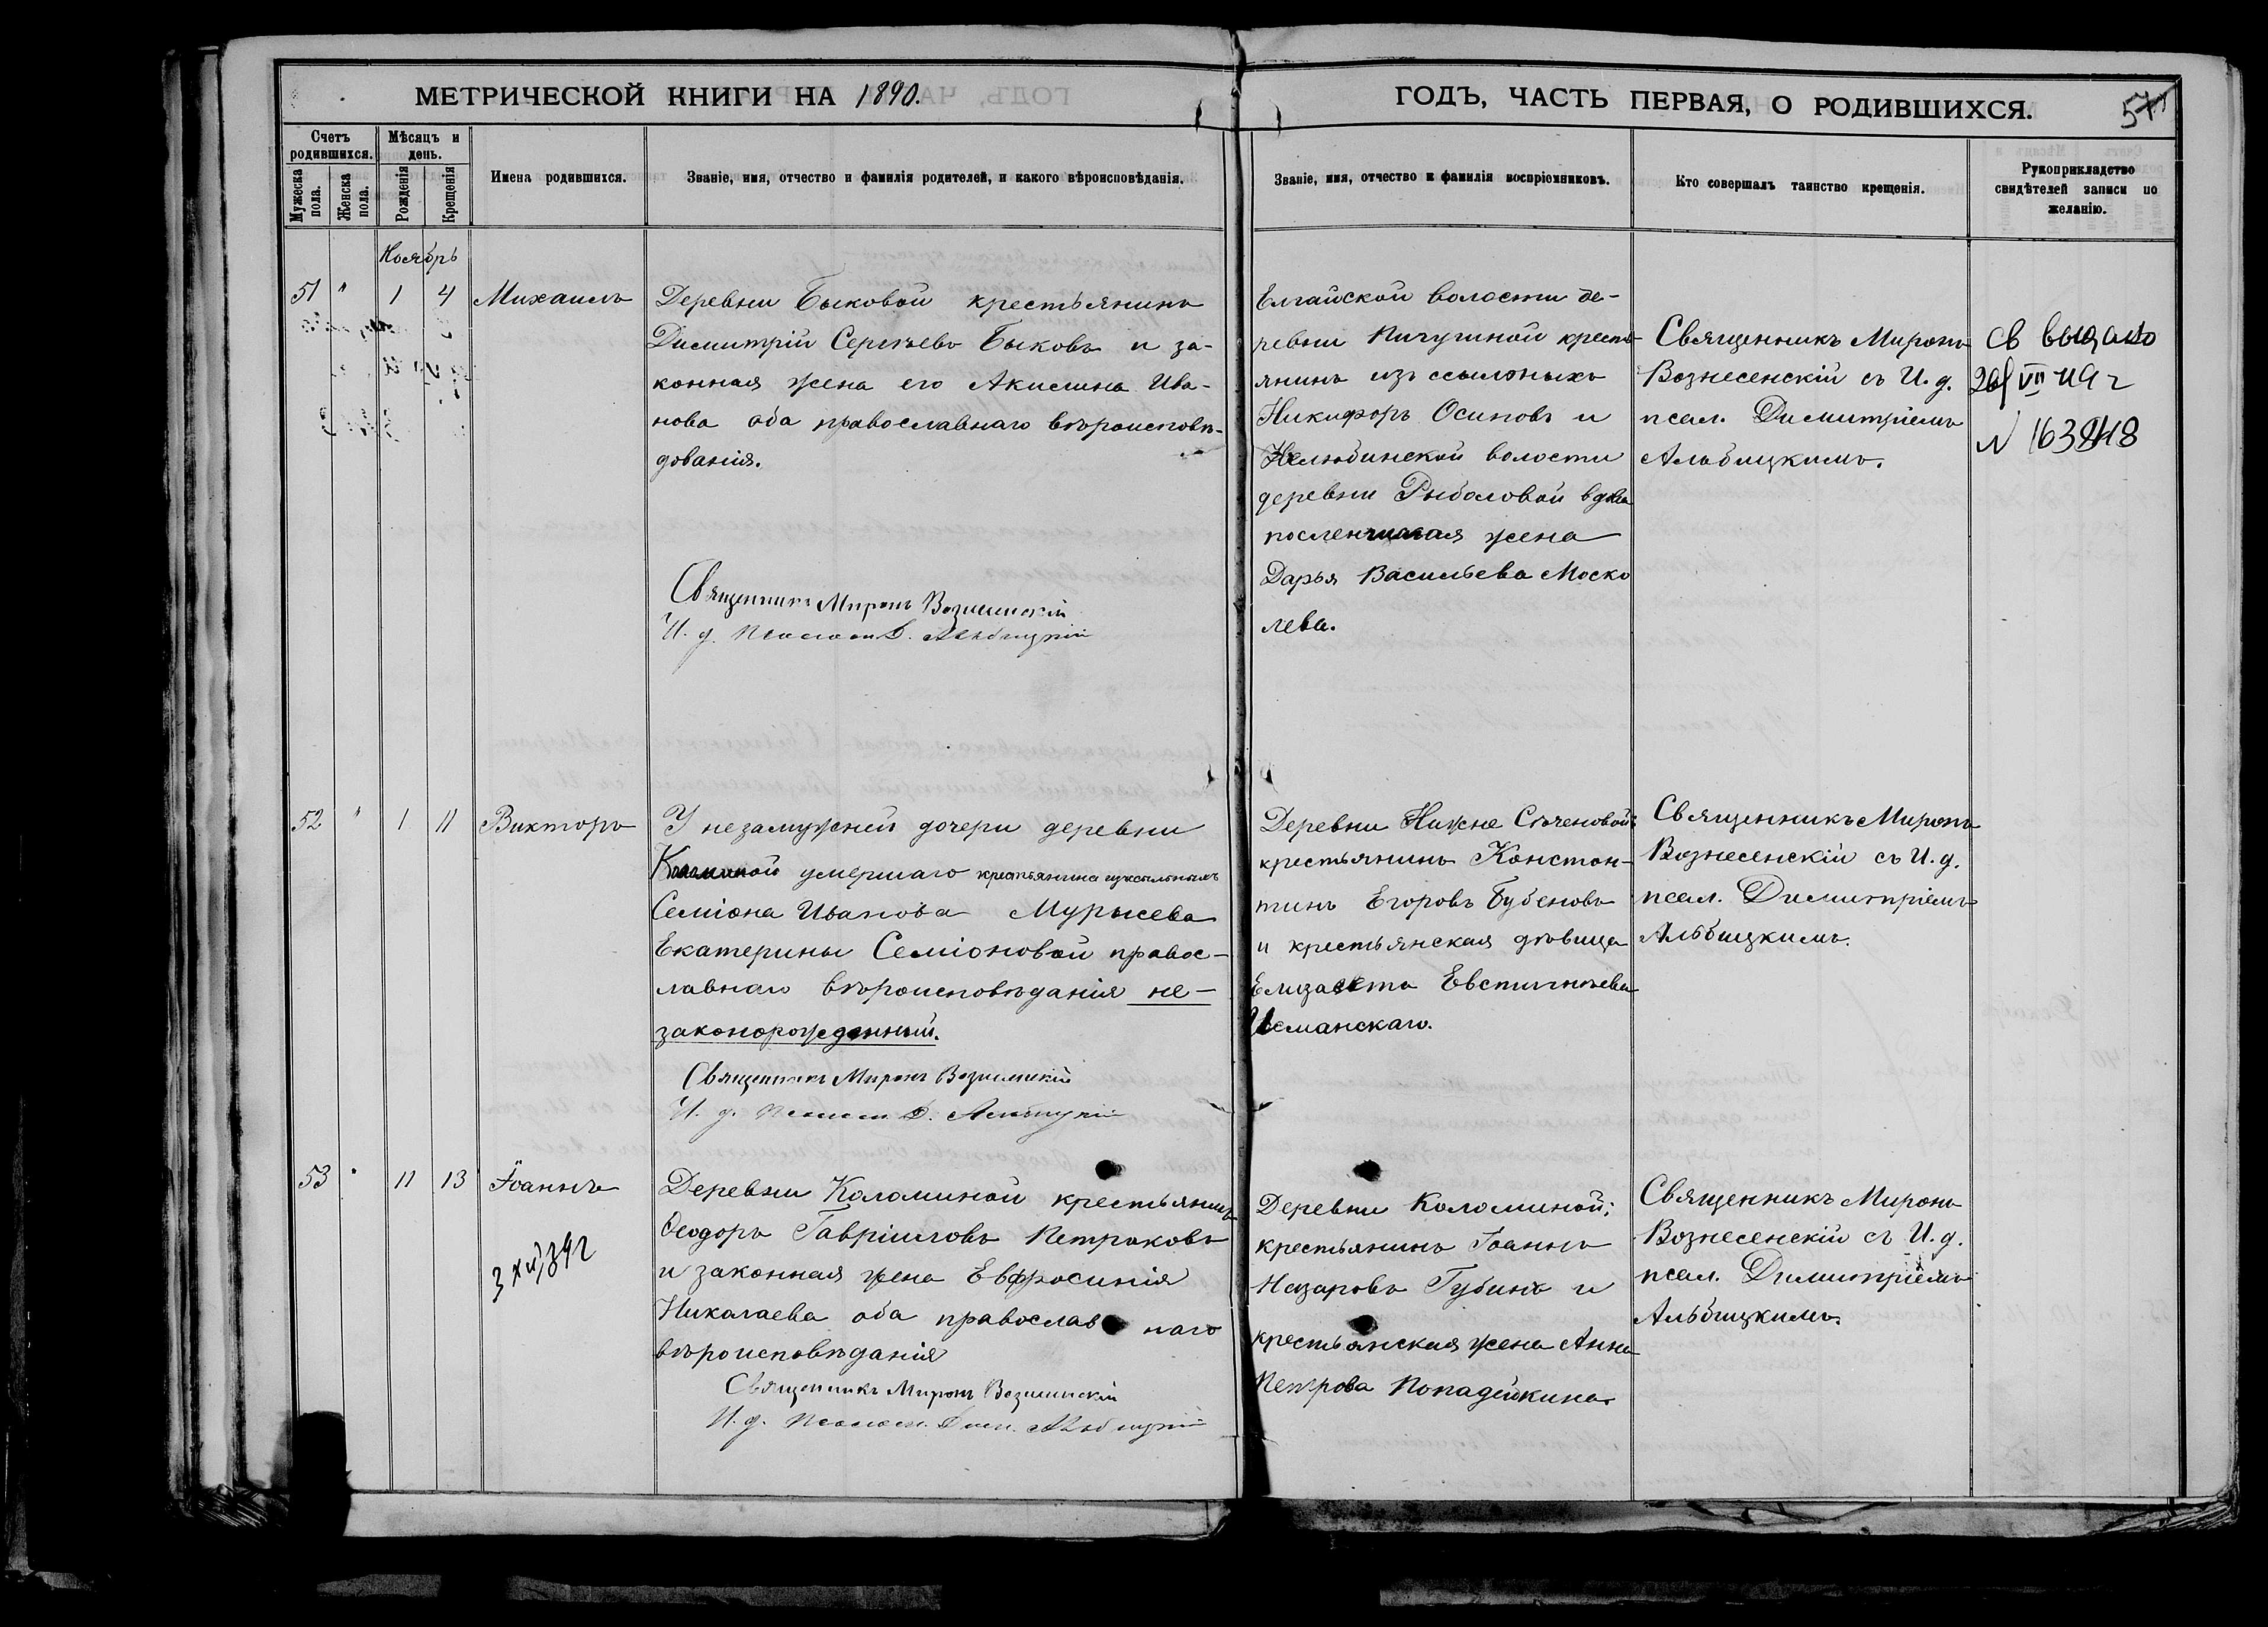 МЕТРИЧЕСКОЙ КНИГИ НА 1890.
Счетъ родившихся.
Мужеска пола.
Женска пола.
Мѣсяцъ и день.
Рожденія
Крещенія
Имена родившихся.
Званіе, имя, отчество и фамилія родителей, и какого вѣроисповѣданія.
Ноябрь
51 " 1 4 Михаилъ
Деревни Быковой крестьянинъ
Димитрій Сергѣевъ Быковъ и за-
конная жена его Акилина Ива-
нова оба православнаго вѣроисповѣ-
дованія.
Священникъ Миронъ Вознесенскій
И. д. Псалом. Д. Альбицкій
52 " 1 11 Викторъ
У незамужней дочери деревни
умершаго крестьянина изъ ссыльныхъ
Семіона Иванова Мурысева
Екатерины Семіоновой правос-
лавнаго вѣроисповѣданія не-
законорожденный.
Священникъ Миронъ Вознесенскій
И. д. Псалом. Д. Альбицкій
53 " 11 13 Іоаннъ
3 XII 39 г
Деревни Коломиной крестьянинъ
Ѳеодоръ Гавріиловъ Петраковъ
и законная жена Евфросинія
Николаева оба православнаго
вѣроисповѣданія
Священникъ Миронъ Вознесенскій
И. д. Псалом. Дим. Альбицкій
ГОДЪ, ЧАСТЬ ПЕРВАЯ, О РОДИВШИХСЯ.
Званіе, имя, отчество и фамилія воспріемниковъ.
Кто совершалъ таинство крещенія.
Рукоприкладство свидѣтелей записи по желанію.
Елгайской волости де-
ревни Пичугиной кресть-
янинъ изъ ссыльныхъ
Никифоръ Осиповъ и
Нелюбинской волости
деревни Рыболовой
жена
Дарья Васильева Моско
лева.
Священникъ Миронъ
Вознесенскій съ И. д.
псал. Димитріемъ
Альбицкимъ.
св выдано
VII 49 г
N
Деревни Нижне Сѣченовой:
крестьянинъ Констан-
тинъ Егоровъ Бубеновъ
и крестьянская дѣвица
Елизавета Евстигнѣева
Усманскаго.
Священникъ Миронъ
Вознесенскій съ И. д.
псал. Димитріемъ
Альбицкимъ.
Деревни Коломиной;
крестьянинъ Іоаннъ
Назаровъ Губинъ и
крестьянская жена Анна
Петрова Попадейкина.
Священникъ Миронъ
Вознесенскій съ И. д.
псал. Димитріемъ
Альбицкимъ.